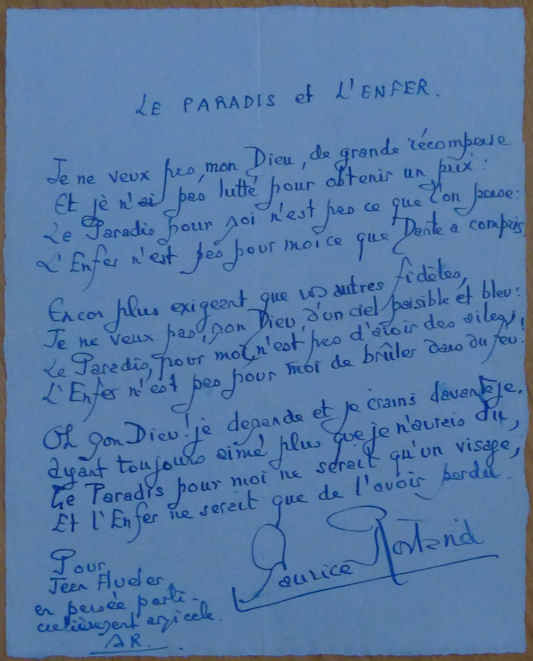 LE PARADIS et L'ENFER.
Je ne veux pas, mon Dieu, de grande récompense
Et je n'ai pas lutté pour obtenir un prix :
Le Paradis pour moi n'est pas ce que l'on pense :
L'Enfer n'est pas pour moi ce que Dante a compris,
Encor plus exigeant que vos autres fidèles,
Je ne veux pas, mon Dieu, d'un ciel paisible et bleu :
Le Paradis, pour moi, n'est pas d'avoir des ailes,
L'Enfer n'est pas pour moi de brûler dans du feu !
Oh mon Dieu ! je demande et je crains davantage,
Ayant toujours aimé plus que je n'aurais dû,
Le Paradis pour moi ne serait qu'un visage,
Et l'Enfer ne serait que de l'avoir perdu.
Maurice Rostand
Pour
Jean
en pensée parti-
culièrement amicale.